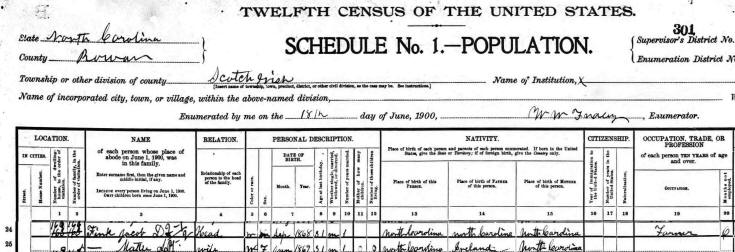 TWELFTH CENSUS OF THE UNITED STATES.
State North Carolina
County Rowan
SCHEDULE No. 1.—POPULATION.
301
Supervisor's District No.
Enumeration District No.
Township or other division of county Scotch Irish
[Insert name of township, town, precinct, district, or other civil division, as the case may be. See instructions.]
Name of Institution, X
Name of incorporated city, town, or village, within the above-named division,
Enumerated by me on the 18th day of June, 1900, Enumerator.
LOCATION. NAME RELATION. PERSONAL DESCRIPTION. NATIVITY. CITIZENSHIP. OCCUPATION, TRADE, OR PROFESSION
IN CITIES.
Street.
House Number.
of each person whose place of abode on June 1, 1900, was in this family.
Enter surname first, then the given name and middle initial, if any.
INCLUDE every person living on June 1, 1900.
OMIT children born since June 1, 1900.
Relationship of each person to the head of the family.
Color or race.
Sex.
DATE OF BIRTH.
Month. Year.
Age at last birthday.
Place of birth of each person and parents of each person enumerated. If born in the United States, give the State or Territory; if of foreign birth, give the Country only.
Place of birth of this PERSON.
Place of birth of FATHER of this person.
Place of birth of MOTHER of this person.
Naturalization.
of each person TEN YEARS of age and over.
OCCUPATION.
1 2 3 4 5 6 7 8 9 10 11 12 13 14 15 16 17 18 19 20
24 Fink Jacob Head Sep 1868 31 m 1 North Carolina North Carolina North Carolina Farmer
25 wife W F 1869 31 m 1 North Carolina Ireland North Carolina